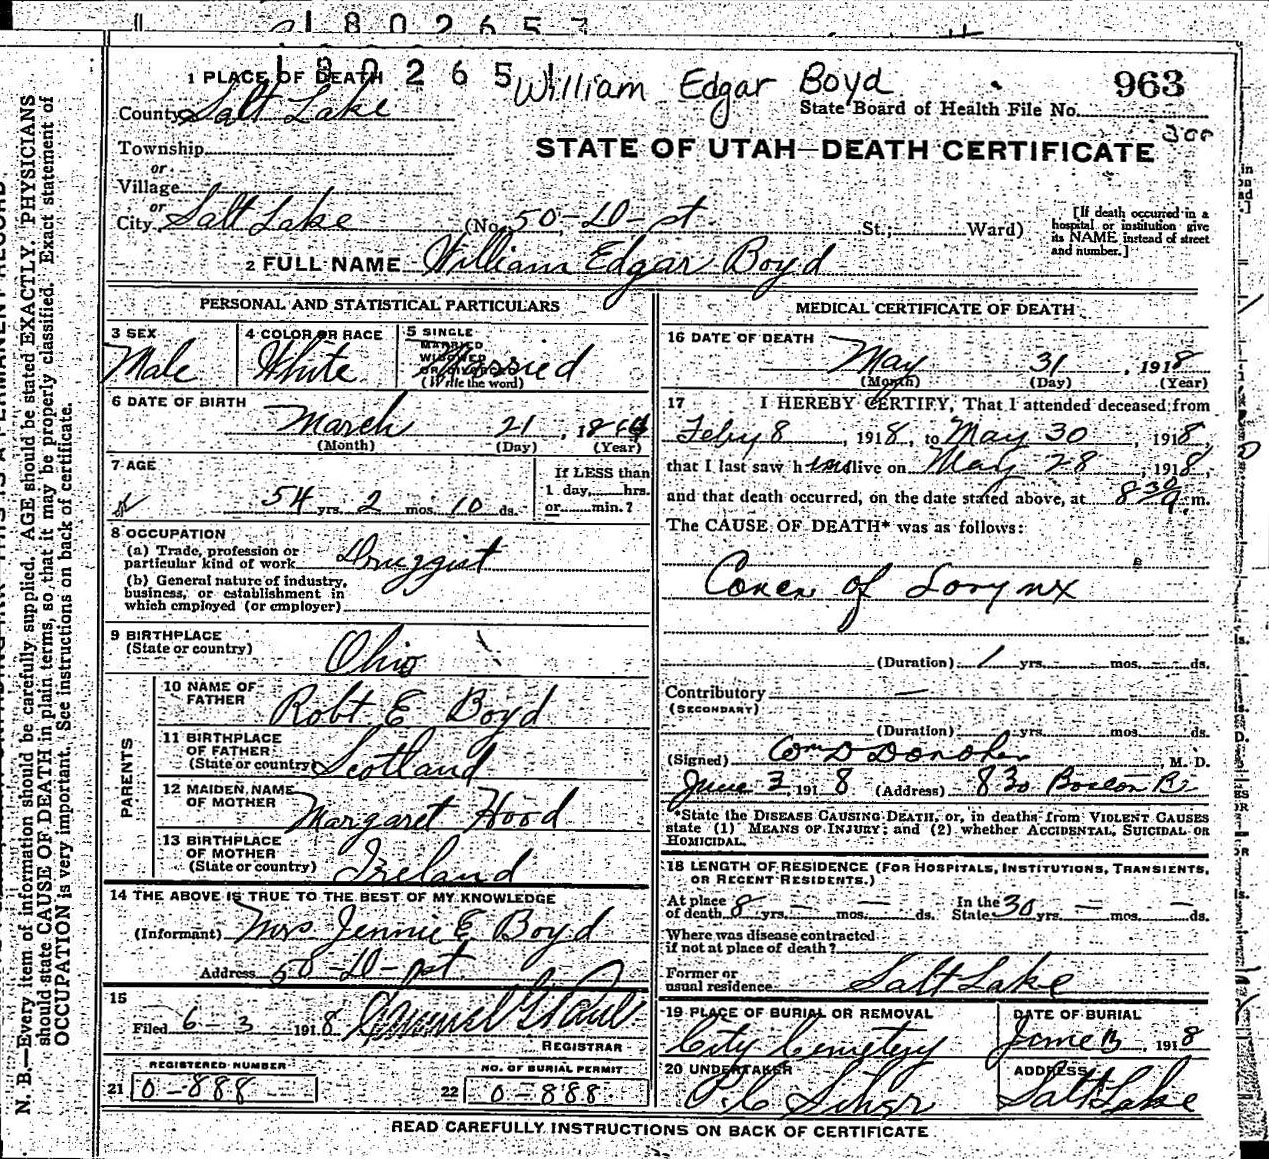 1802653
180265
William Edgar Boyd
963
1 PLACE OF DEATH
County Salt Lake
State Board of Health File No.
300
Township
or
Village
or
STATE OF UTAH—DEATH CERTIFICATE
City Salt Lake (No. 50-10- St.; Ward)
[If death occurred in a hospital or institution give its NAME instead of street and number.]
2 FULL NAME William Edgar Boyd
PERSONAL AND STATISTICAL PARTICULARS
3 SEX
Male
4 COLOR OR RACE
White
5 SINGLE
MARRIED
WIDOWED
OR DIVORCED
(Write the word)
Married
6 DATE OF BIRTH
March 21, 1864
(Month) (Day) (Year)
7 AGE
54 yrs. 2 mos. 10 ds.
If LESS than
1 day, hrs.
or min.?
8 OCCUPATION
(a) Trade, profession or
particular kind of work Druggist
(b) General nature of industry,
business, or establishment in
which employed (or employer)
9 BIRTHPLACE
(State or country) Ohio
PARENTS
10 NAME OF
FATHER Robt E Boyd
11 BIRTHPLACE
OF FATHER
(State or country) Scotland
12 MAIDEN NAME
OF MOTHER Margaret Hood
13 BIRTHPLACE
OF MOTHER
(State or country) Ireland
14 THE ABOVE IS TRUE TO THE BEST OF MY KNOWLEDGE
(Informant) Mrs Jennie E Boyd
Address 50-10-
15
Filed 6-3 1918
REGISTRAR
REGISTERED NUMBER
21 0-888
NO. OF BURIAL PERMIT
22 0-888
MEDICAL CERTIFICATE OF DEATH
16 DATE OF DEATH
May 31, 1918
(Month) (Day) (Year)
17 I HEREBY CERTIFY, That I attended deceased from
Feby 8, 1918, to May 30, 1918,
that I last saw him alive on May 28, 1918,
and that death occurred, on the date stated above, at 8 30 a. m.
The CAUSE OF DEATH* was as follows:
Cancer of Larynx
(Duration) 1 yrs. mos. ds.
Contributory —
(SECONDARY)
(Duration) yrs. mos. ds.
(Signed) Wm D Donoher, M. D.
June 3 1918 (Address) 830 Boston Bl
*State the DISEASE CAUSING DEATH, or, in deaths from VIOLENT CAUSES
state (1) MEANS OF INJURY; and (2) whether ACCIDENTAL, SUICIDAL OR
HOMICIDAL.
18 LENGTH OF RESIDENCE (FOR HOSPITALS, INSTITUTIONS, TRANSIENTS,
OR RECENT RESIDENTS.)
At place
of death 8 yrs. — mos. — ds.
In the
State 30 yrs. — mos. — ds.
Where was disease contracted
if not at place of death?
Former or
usual residence Salt Lake
19 PLACE OF BURIAL OR REMOVAL
City Cemetery
DATE OF BURIAL
June 3, 1918
20 UNDERTAKER
ADDRESS
Salt Lake
READ CAREFULLY INSTRUCTIONS ON BACK OF CERTIFICATE
N. B.—Every item of information should be carefully supplied. AGE should be stated EXACTLY. PHYSICIANS
should state CAUSE OF DEATH in plain terms, so that it may be properly classified. Exact statement of
OCCUPATION is very important. See instructions on back of certificate.